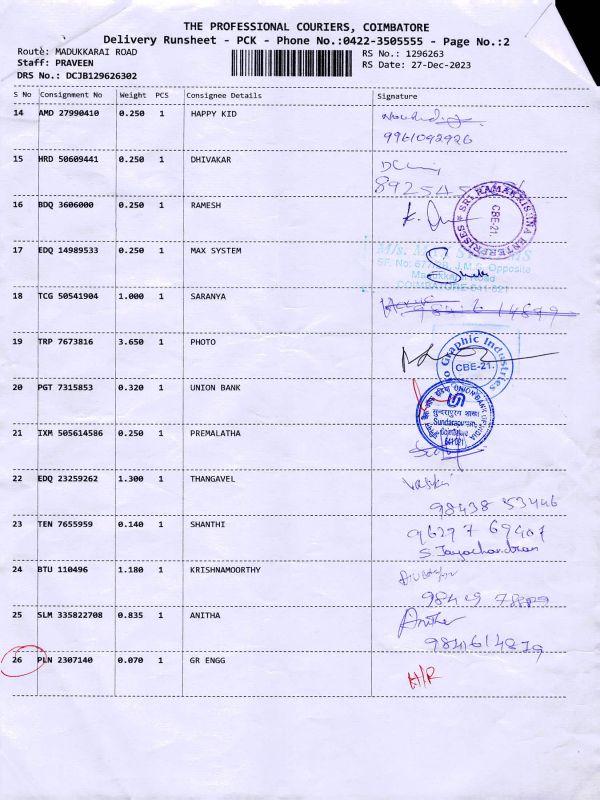 THE PROFESSIONAL COURIERS, COIMBATORE
Delivery Runsheet - PCK - Phone No.:0422-3505555 - Page No.:2
Route: MADUKKARAI ROAD RS No.: 1296263
Staff: PRAVEEN RS Date: 27-Dec-2023
DRS No.: DCJB129626302
S No Consignment No Weight PCS Consignee Details Signature
14 AMD 27990410 0.250 1 HAPPY KID
9961092926
15 HRD 50609441 0.250 1 DHIVAKAR
16 BDQ 3606000 0.250 1 RAMESH
SRI RAMAKRISHNA ENTERPRISES
CBE-21.
17 EDQ 14989533 0.250 1 MAX SYSTEM
Opposite
COIMBATORE-641 021
18 TCG 50541904 1.000 1 SARANYA
19 TRP 7673816 3.650 1 PHOTO
Graphic Industries
CBE-21.
20 PGT 7315853 0.320 1 UNION BANK
UNION BANK OF INDIA
सुन्दरापुरम शाखा
Sundarapuram
641 021
21 IXM 505614586 0.250 1 PREMALATHA
22 EDQ 23259262 1.300 1 THANGAVEL
98438 53446
23 TEN 7655959 0.140 1 SHANTHI
96297 69407
S Jayachandran
24 BTU 110496 1.180 1 KRISHNAMOORTHY
25 SLM 335822708 0.835 1 ANITHA
Anitha
9841614879
26 PLN 2307140 0.070 1 GR ENGG
H/R